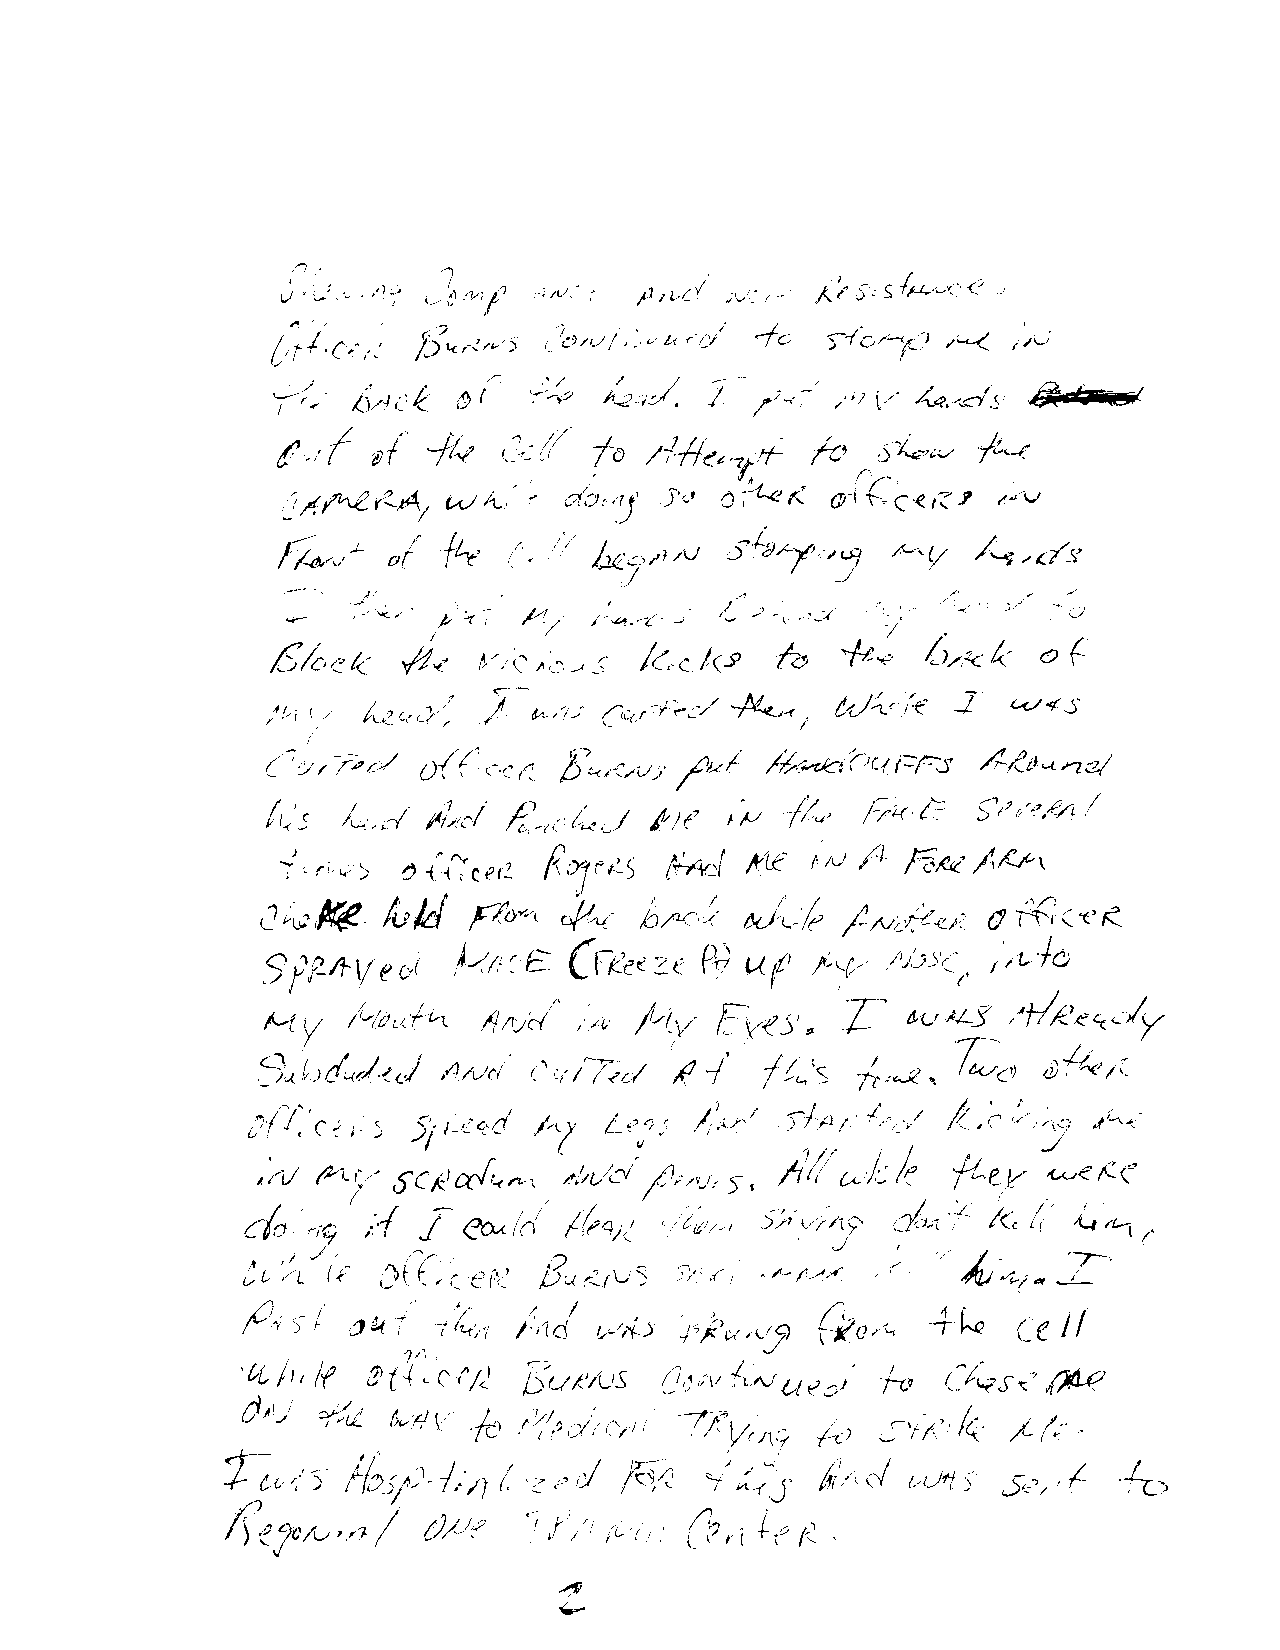 Showing Compliance and non Resistance.
Officer Burns Continued to stomp me in
the back of the head. I put my hands
out of the Cell to Attempt to show the
CAMERA, while doing so other officers in
Front of the Cell began stomping my hands
I then put my hands behind my head to
Block the vicious kicks to the back of
my head. I was cuffed then, while I was
Cuffed officer Burns put HandCUFFS ARound
his hand And Punched me in the FACE Several
times officer Rogers Had me in A ForeARM
choke held From the back while Another officer
SPRAYed MACE (FReeze P+) up my Nose, into
my Mouth And in My Eyes. I was AlReady
Subduded And Cuffed At this time. Two other
officers spread my Legs And started kicking me
in my scrodum And penis. All while they were
doing it I could Hear them Saying don't kill him,
while officer Burns said imma kill him. I
Past out then And was from the cell
while officer Burns Continued to Chase me
ON the WAY to Medical TRying to StRike Me.
I was Hospitinlized FOR this And was sent to
Regonial ONE TRAMA Center.
2